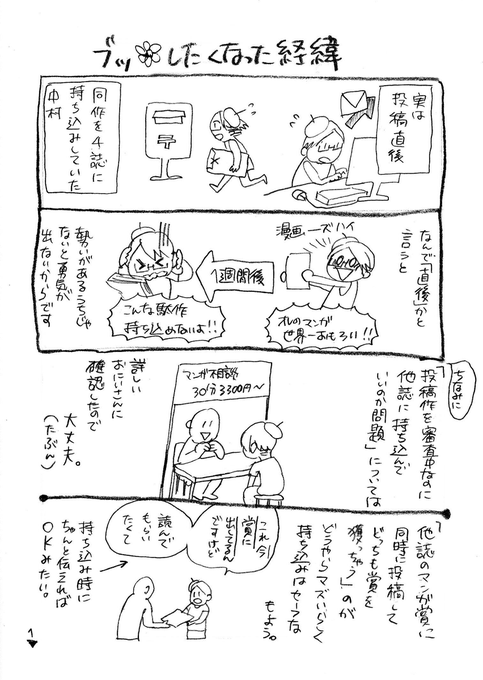 ブッしたくなった経緯
実は
投稿直後
同作を4誌に
持ち込みしていた
中村
なんで「直後」かと
言うと
漫画ーズハイ
オレのマンガ
世界一おもろい!!
1週間後
こんな駄作
持ち込めないよ!!
勢いがあるうちじゃ
ないと勇気が
出ないからです
ちなみに
「投稿作を審査中なのに
他誌に持ち込んで
いいのか問題」については
マンガ相談
30分3300円〜
詳しい
おにいさんに
確認したので
大丈夫。
(たぶん)
「他誌のマンガ賞に
同時に投稿して
どっちも賞を
獲っちゃう」のが
どうやらマズいらしくて
持ち込みはセーフな
もよう。
これ今
賞に
出してるん
ですけど
読んで
もらい
たくて
持ち込み時に
ちゃんと伝えれば
OKみたい。
1